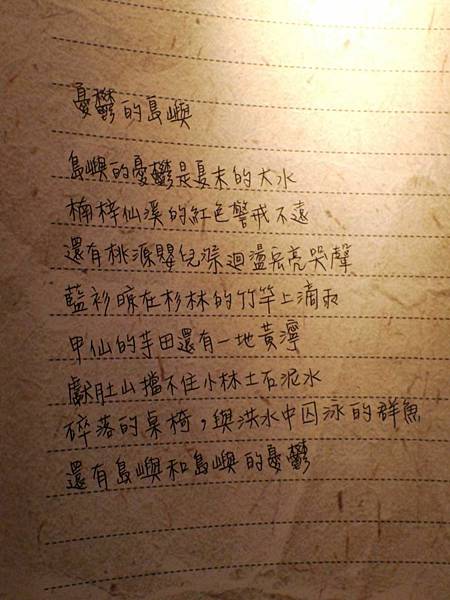 憂鬱的島嶼
島嶼的憂鬱是夏末的大水
楠梓仙溪的紅色警戒不遠
還有桃源嬰兒深迴盪宏亮哭聲
藍衫晾在杉林的竹竿上滴雨
甲仙的芋田還有一地黃濘
獻肚山擋不住小林土石泥水
碎落的桌椅，與洪水中囚泳的群魚
還有島嶼和島嶼的憂鬱